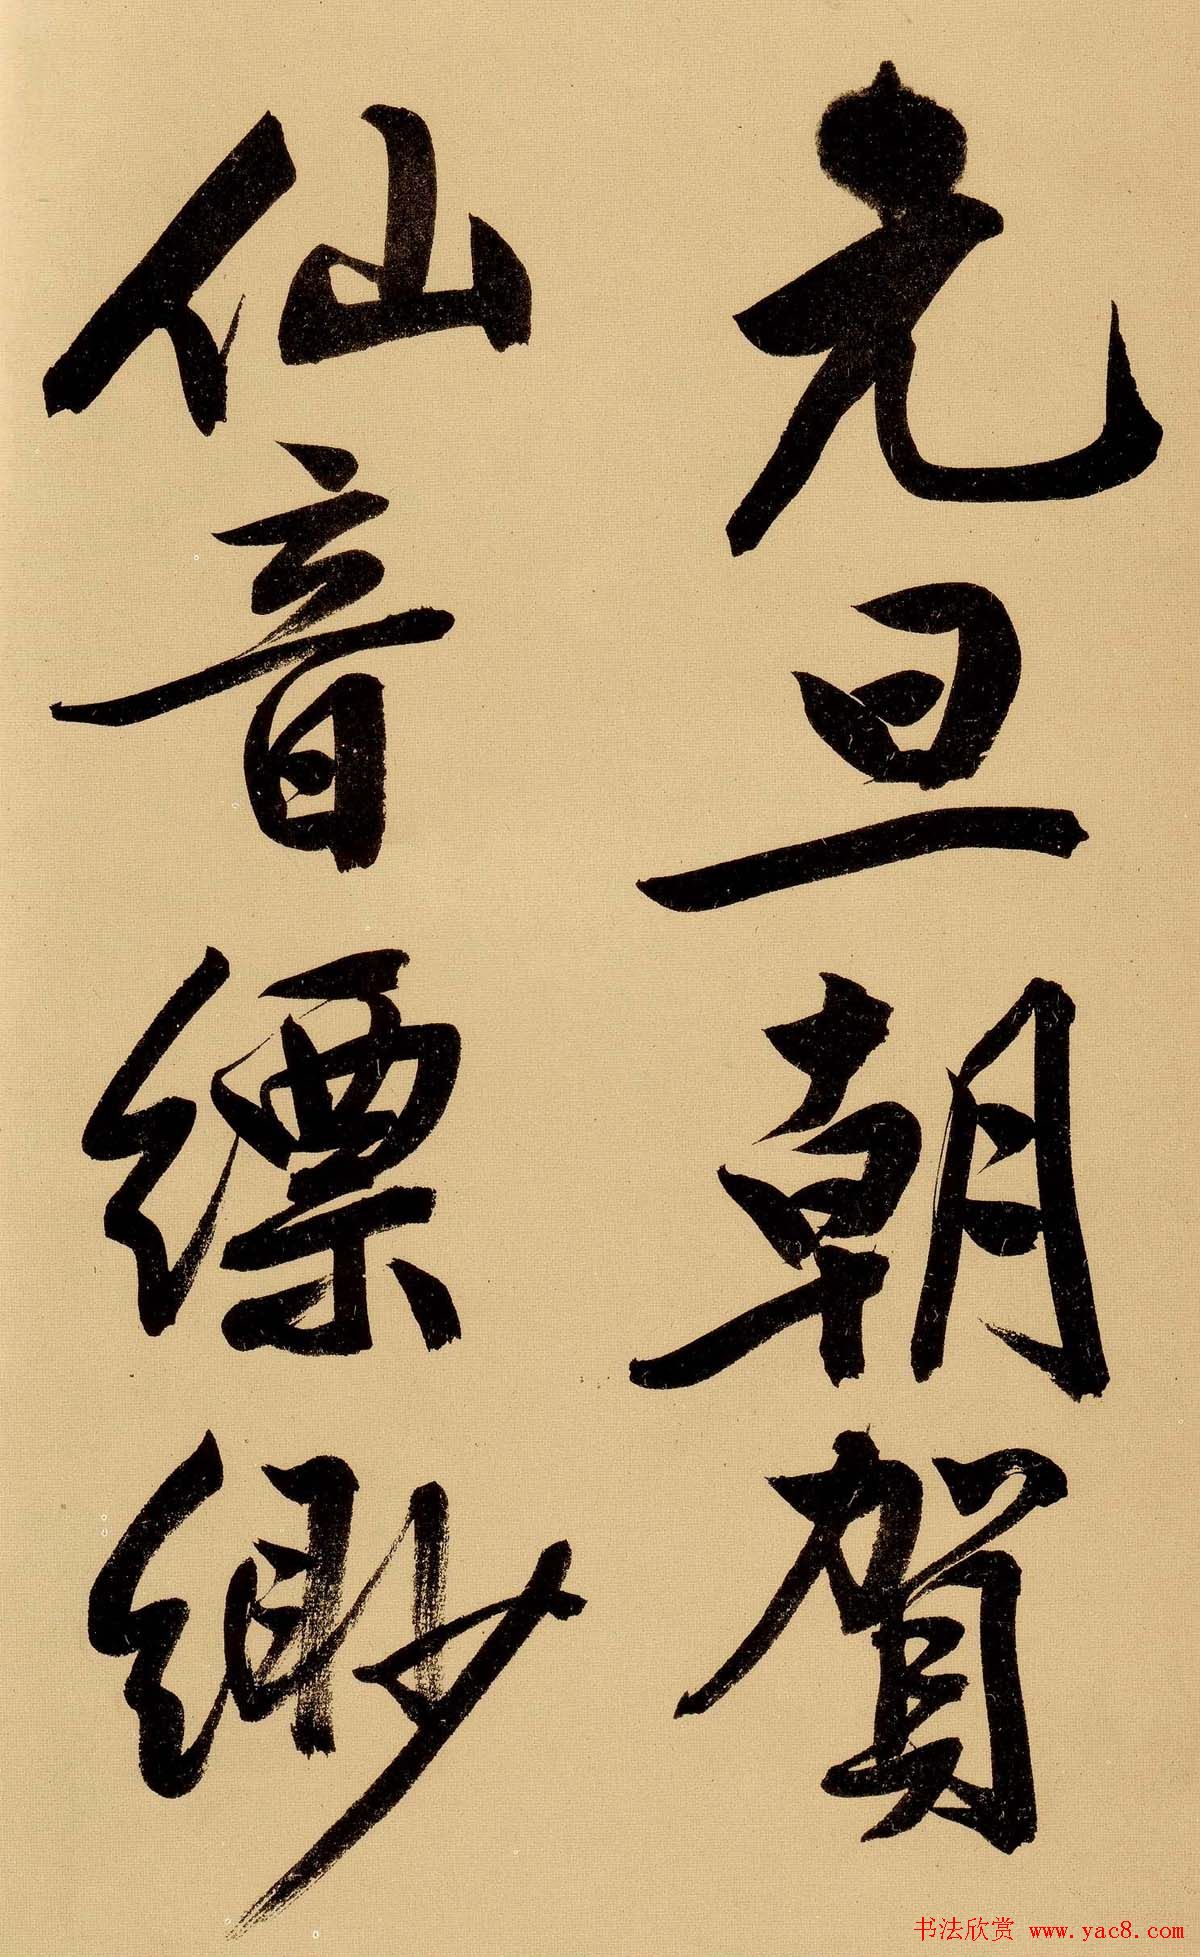 元旦朝賀
仙音縹緲
书法欣赏 www.yac8.com